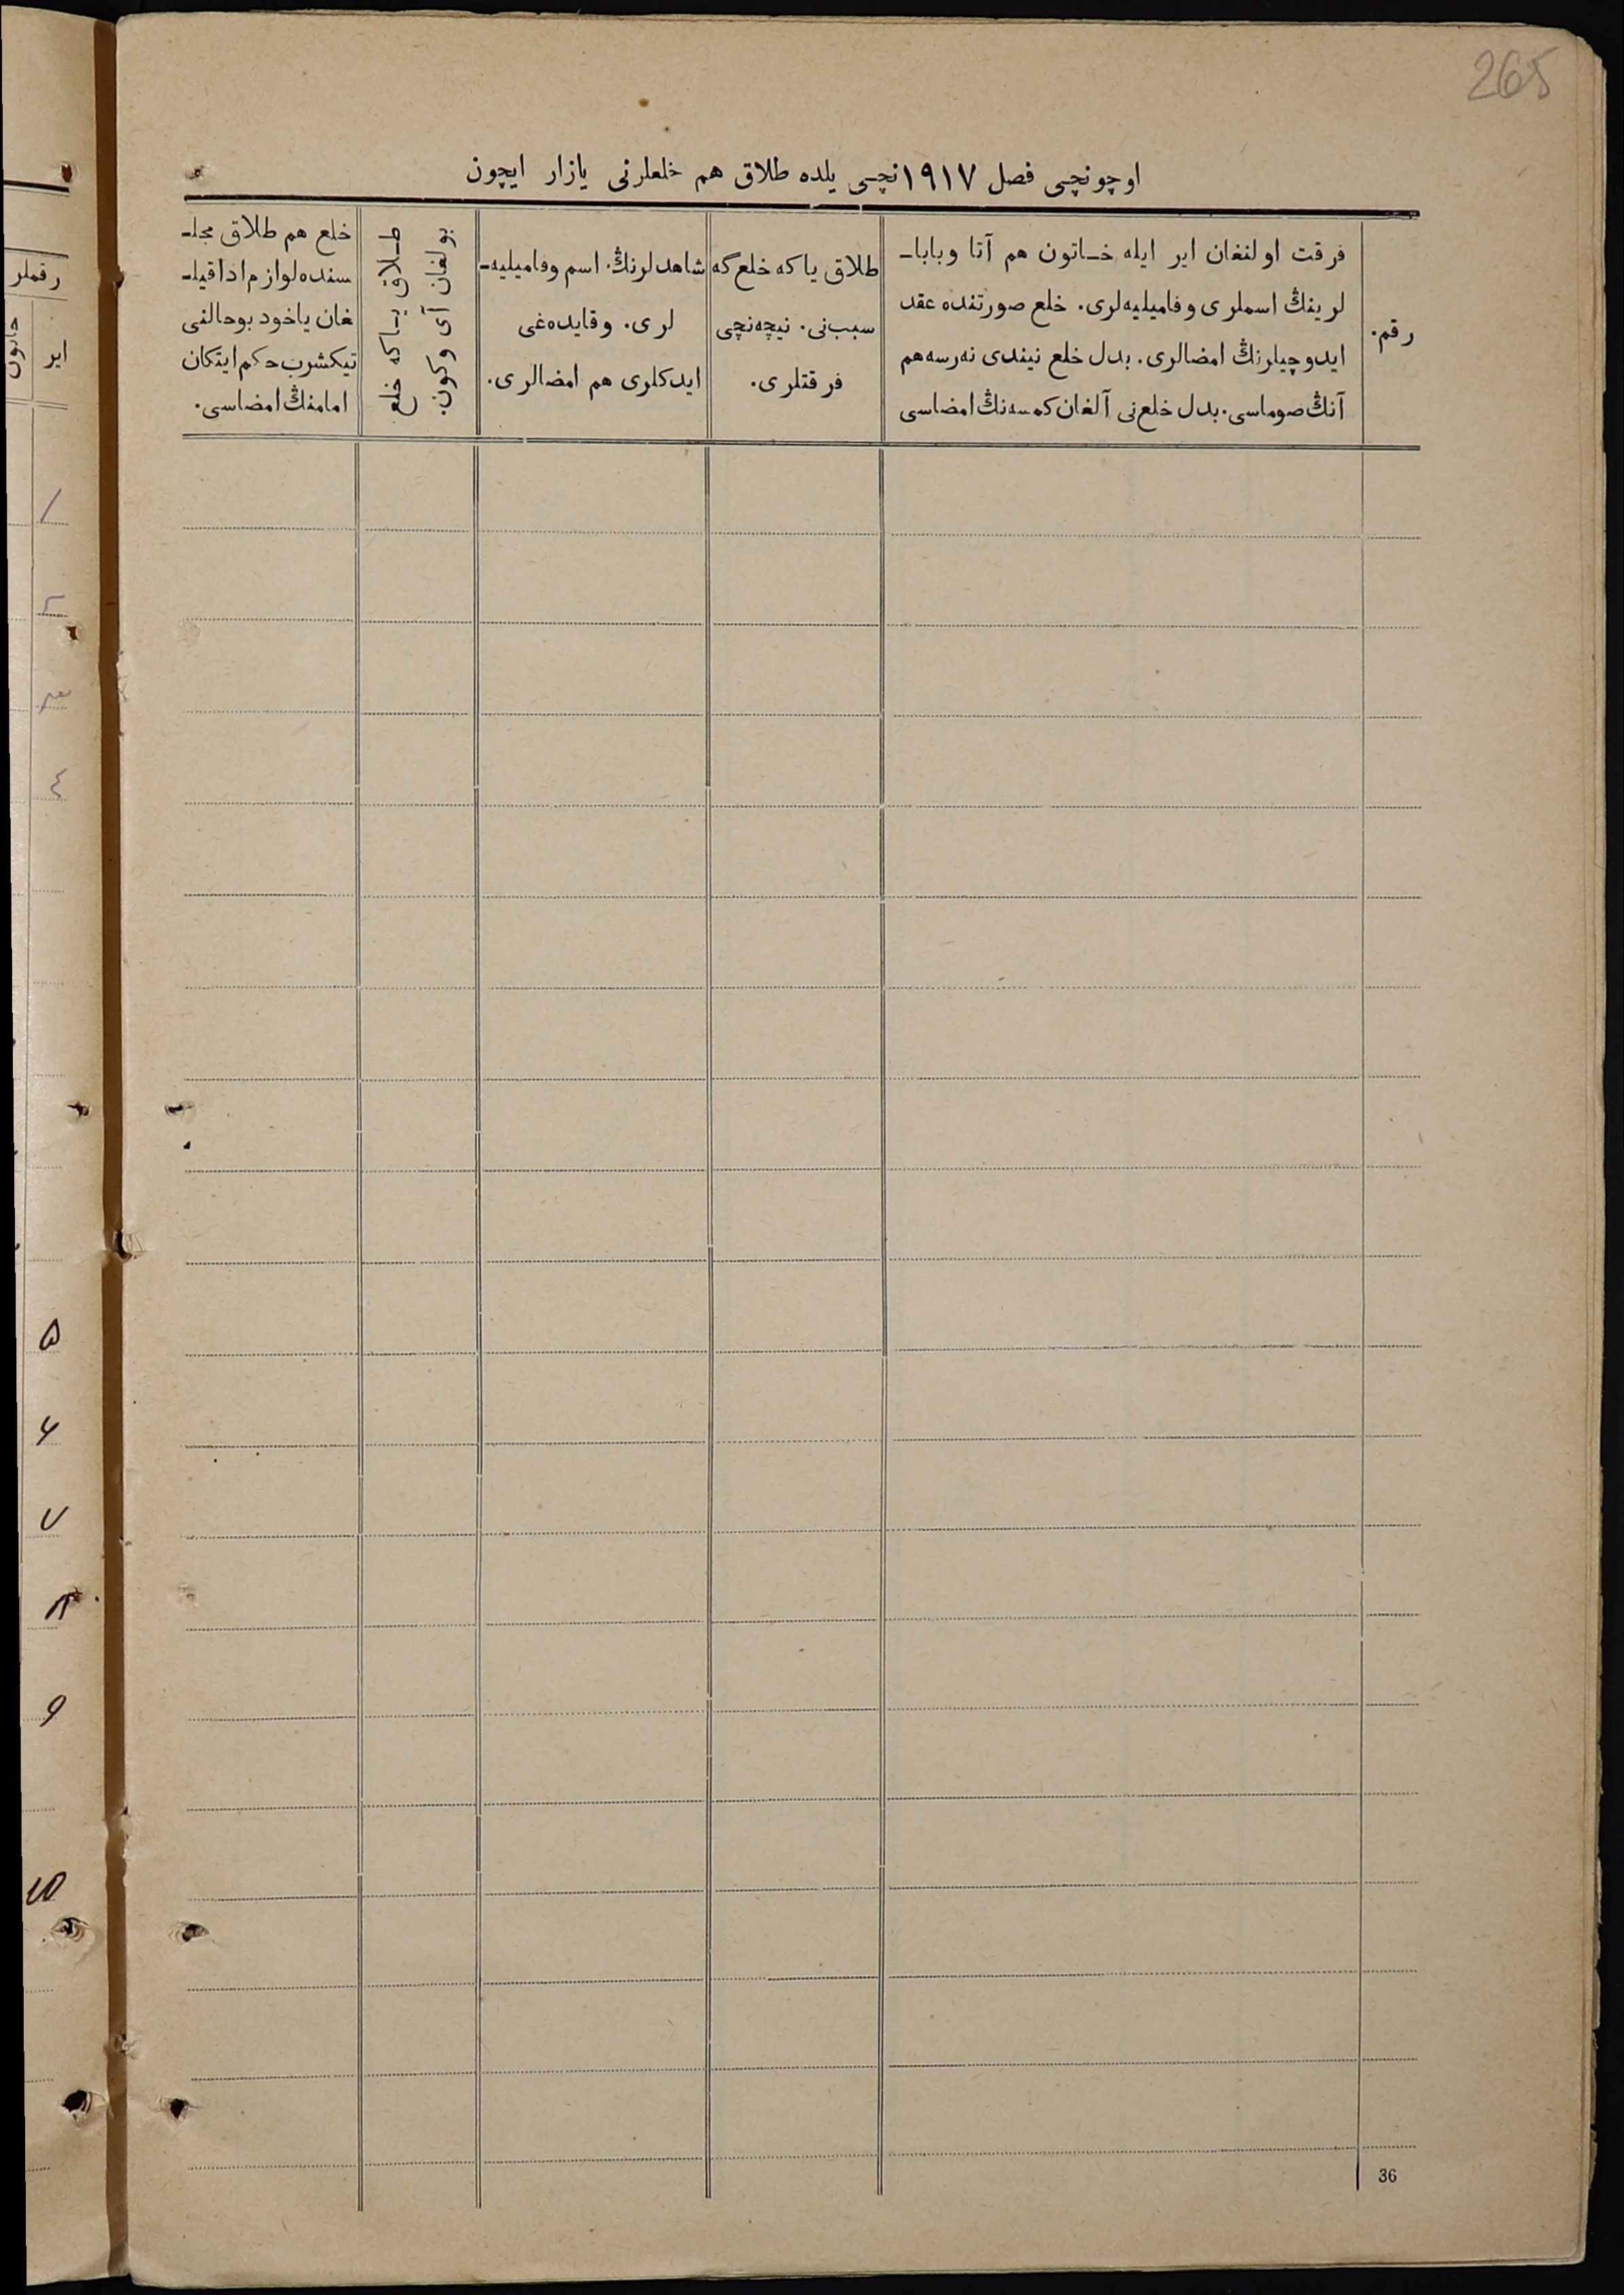 265
اوچونچی فصل ١٩١٧نچی یلده طلاق هم خلعلرنی یازار ایچون
رقم.
فرقت اولنغان ایر ایله خـاتون هم آتا وبابا-
لرینڭ اسملری وفامیلیه‌لری. خلع صورتنده عقد
ایدوچیلرنڭ امضالری. بدل خلع نیندی نه‌رسه هم
آنڭ صوماسی. بدل خلع‌نی آلغان کمسه‌نڭ امضاسی
طلاق یا که خلع گه
سبب‌نی. نیچه‌نچی
فرقتلری.
شاهدلرنڭ. اسم وفامیلیه-
لری. وقایده‌غی
ایدکلری هم امضالری.
طـلاق یـا که خلع
بولغان آی وکون.
خلع هم طلاق مجلـ
سنده لوازم ادا قیلـ
غان یاخود بوحالنی
تیکشرب حکم ایتکان
امامنڭ امضاسی.
رقملر
ایر
خاتون
١
٢
٣
٤
٥
۶
٧
٨
٩
١٥
36